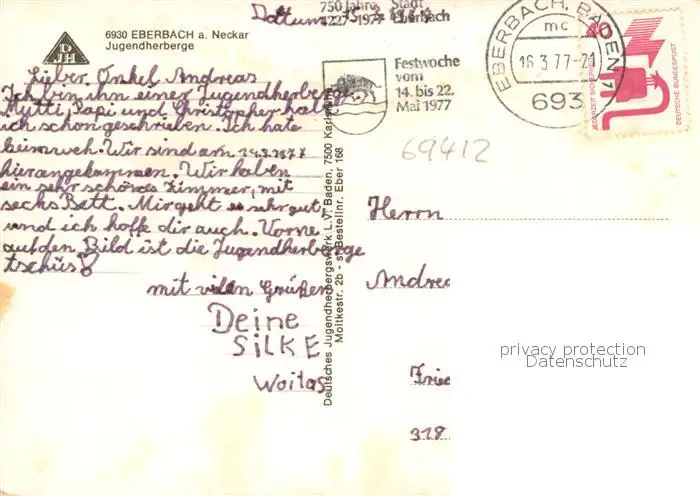 6930 EBERBACH a. Neckar
Jugendherberge
DJH
Dattum 15.
750 Jahre Stadt
1227-1977 Eberbach
Festwoche
vom
14. bis 22.
Mai 1977
EBERBACH, BADEN 1
mc
16.3.77-21
693
40
JEDERZEIT SICHERHEIT
DEUTSCHE BUNDESPOST
69412
Lieber Onkel Andreas
Ich bin ihn einer Jugendherberge
Mutti, Papi und Christopher habe
ich schon geschrieben. Ich hate
heimweh. Wir sind am 14.3.1977
hierangekommen. Wir haben
ein sehr schönes Zimmer, mit
sechs Bett. Mir geht es sehr gut,
und ich hoffe dir auch. Vorne
auf den Bild ist die Jugendherberge
tschüs
mit vielen Grüßen
Deine
SiLKE
Woitas
Deutsches Jugendherbergswerk L.V. Baden, 7500 Karlsruhe
Moltkestr. 2b - Bestellnr. Eber 168
Herrn
Andrea
privacy protection
Datenschutz
318